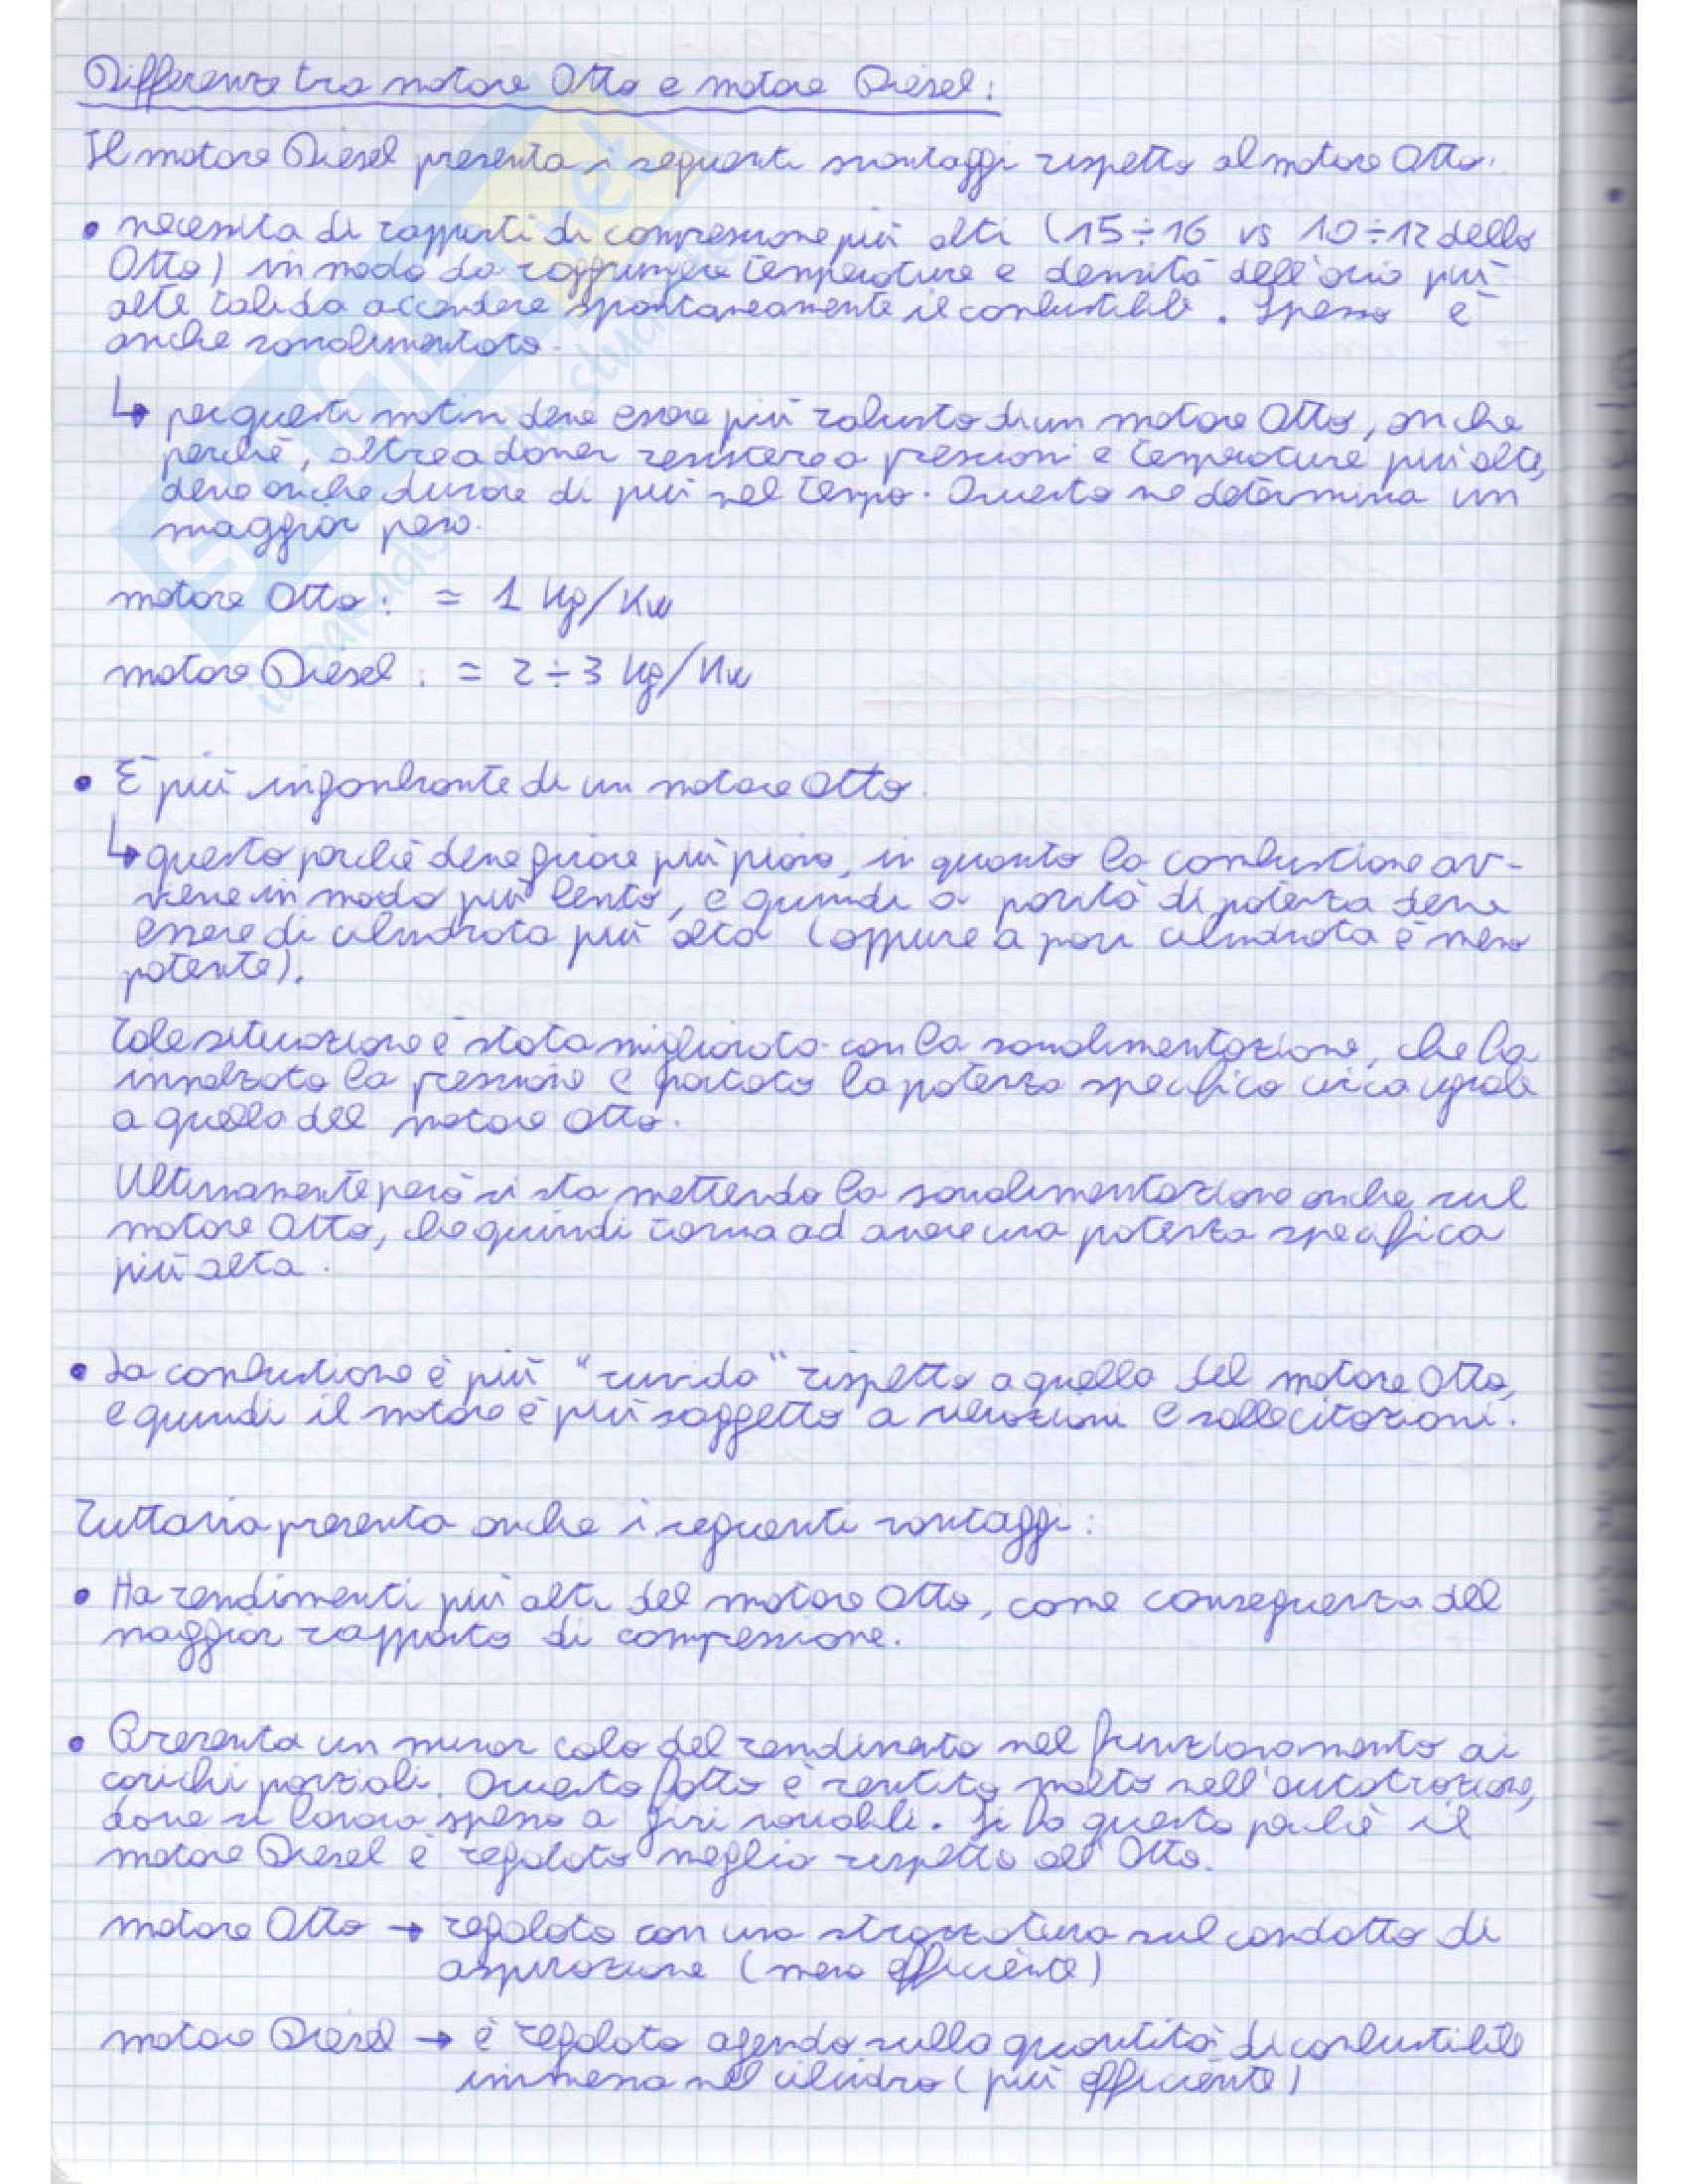 Differenza tra motore Otto e motore Diesel:
Il motore Diesel presenta i seguenti svantaggi rispetto al motore Otto:
• necessita di rapporti di compressione più alti (15÷16 vs 10÷12 dello
Otto) in modo da raggiungere temperature e densità dell'aria più
alte tali da accendere spontaneamente il combustibile. Spesso è
anche sovralimentato.
↳ per questi motivi deve essere più robusto di un motore Otto, anche
perché, oltre a dover resistere a pressioni e temperature più alte,
deve anche durare di più nel tempo. Questo ne determina un
maggior peso.
motore Otto: ≃ 1 Kg/Kw
motore Diesel: ≃ 2÷3 Kg/Kw
• È più ingombrante di un motore Otto.
↳ questo perché deve girare più piano, in quanto la combustione av-
viene in modo più lento, e quindi a parità di potenza deve
essere di cilindrata più alta (oppure a pari cilindrata è meno
potente).
Tale situazione è stata migliorata con la sovralimentazione, che ha
innalzato la pressione e portato la potenza specifica circa uguale
a quella del motore Otto.
Ultimamente però si sta mettendo la sovralimentazione anche sul
motore Otto, che quindi torna ad avere una potenza specifica
più alta.
• La combustione è più "ruvida" rispetto a quella del motore Otto,
e quindi il motore è più soggetto a vibrazioni e sollecitazioni.
Tuttavia presenta anche i seguenti vantaggi:
• Ha rendimenti più alti del motore Otto, come conseguenza del
maggior rapporto di compressione.
• Presenta un minor calo del rendimento nel funzionamento ai
carichi parziali. Questo fatto è sentito molto nell'autotrazione,
dove si lavora spesso a giri variabili. Si ha questo perché il
motore Diesel è regolato meglio rispetto all'Otto.
motore Otto → regolato con una strozzatura sul condotto di
aspirazione (meno efficiente)
motore Diesel → è regolato agendo sulla quantità di combustibile
immessa nel cilindro (più efficiente)